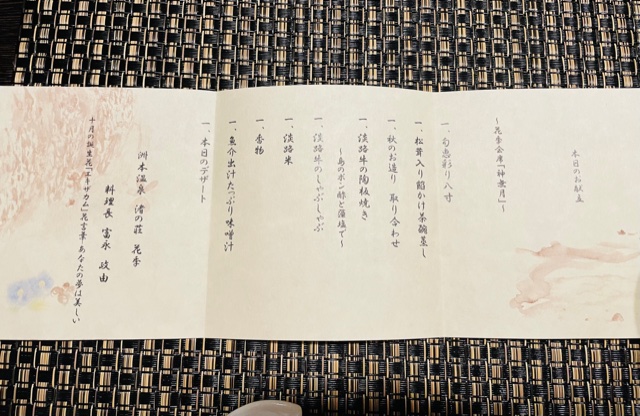 本日のお献立
～花季会席『神無月』～
一、旬恵彩り八寸
一、松茸入り餡かけ茶碗蒸し
一、秋のお造り 取り合わせ
一、淡路牛の陶板焼き
～島のポン酢と藻塩で～
一、淡路牛のしゃぶしゃぶ
一、淡路米
一、香物
一、魚介出汁たっぷり味噌汁
一、本日のデザート
洲本温泉 渚の荘 花季
料理長 富永 政由
十月の誕生花『エキザカム』花言葉 あなたの夢は美しい